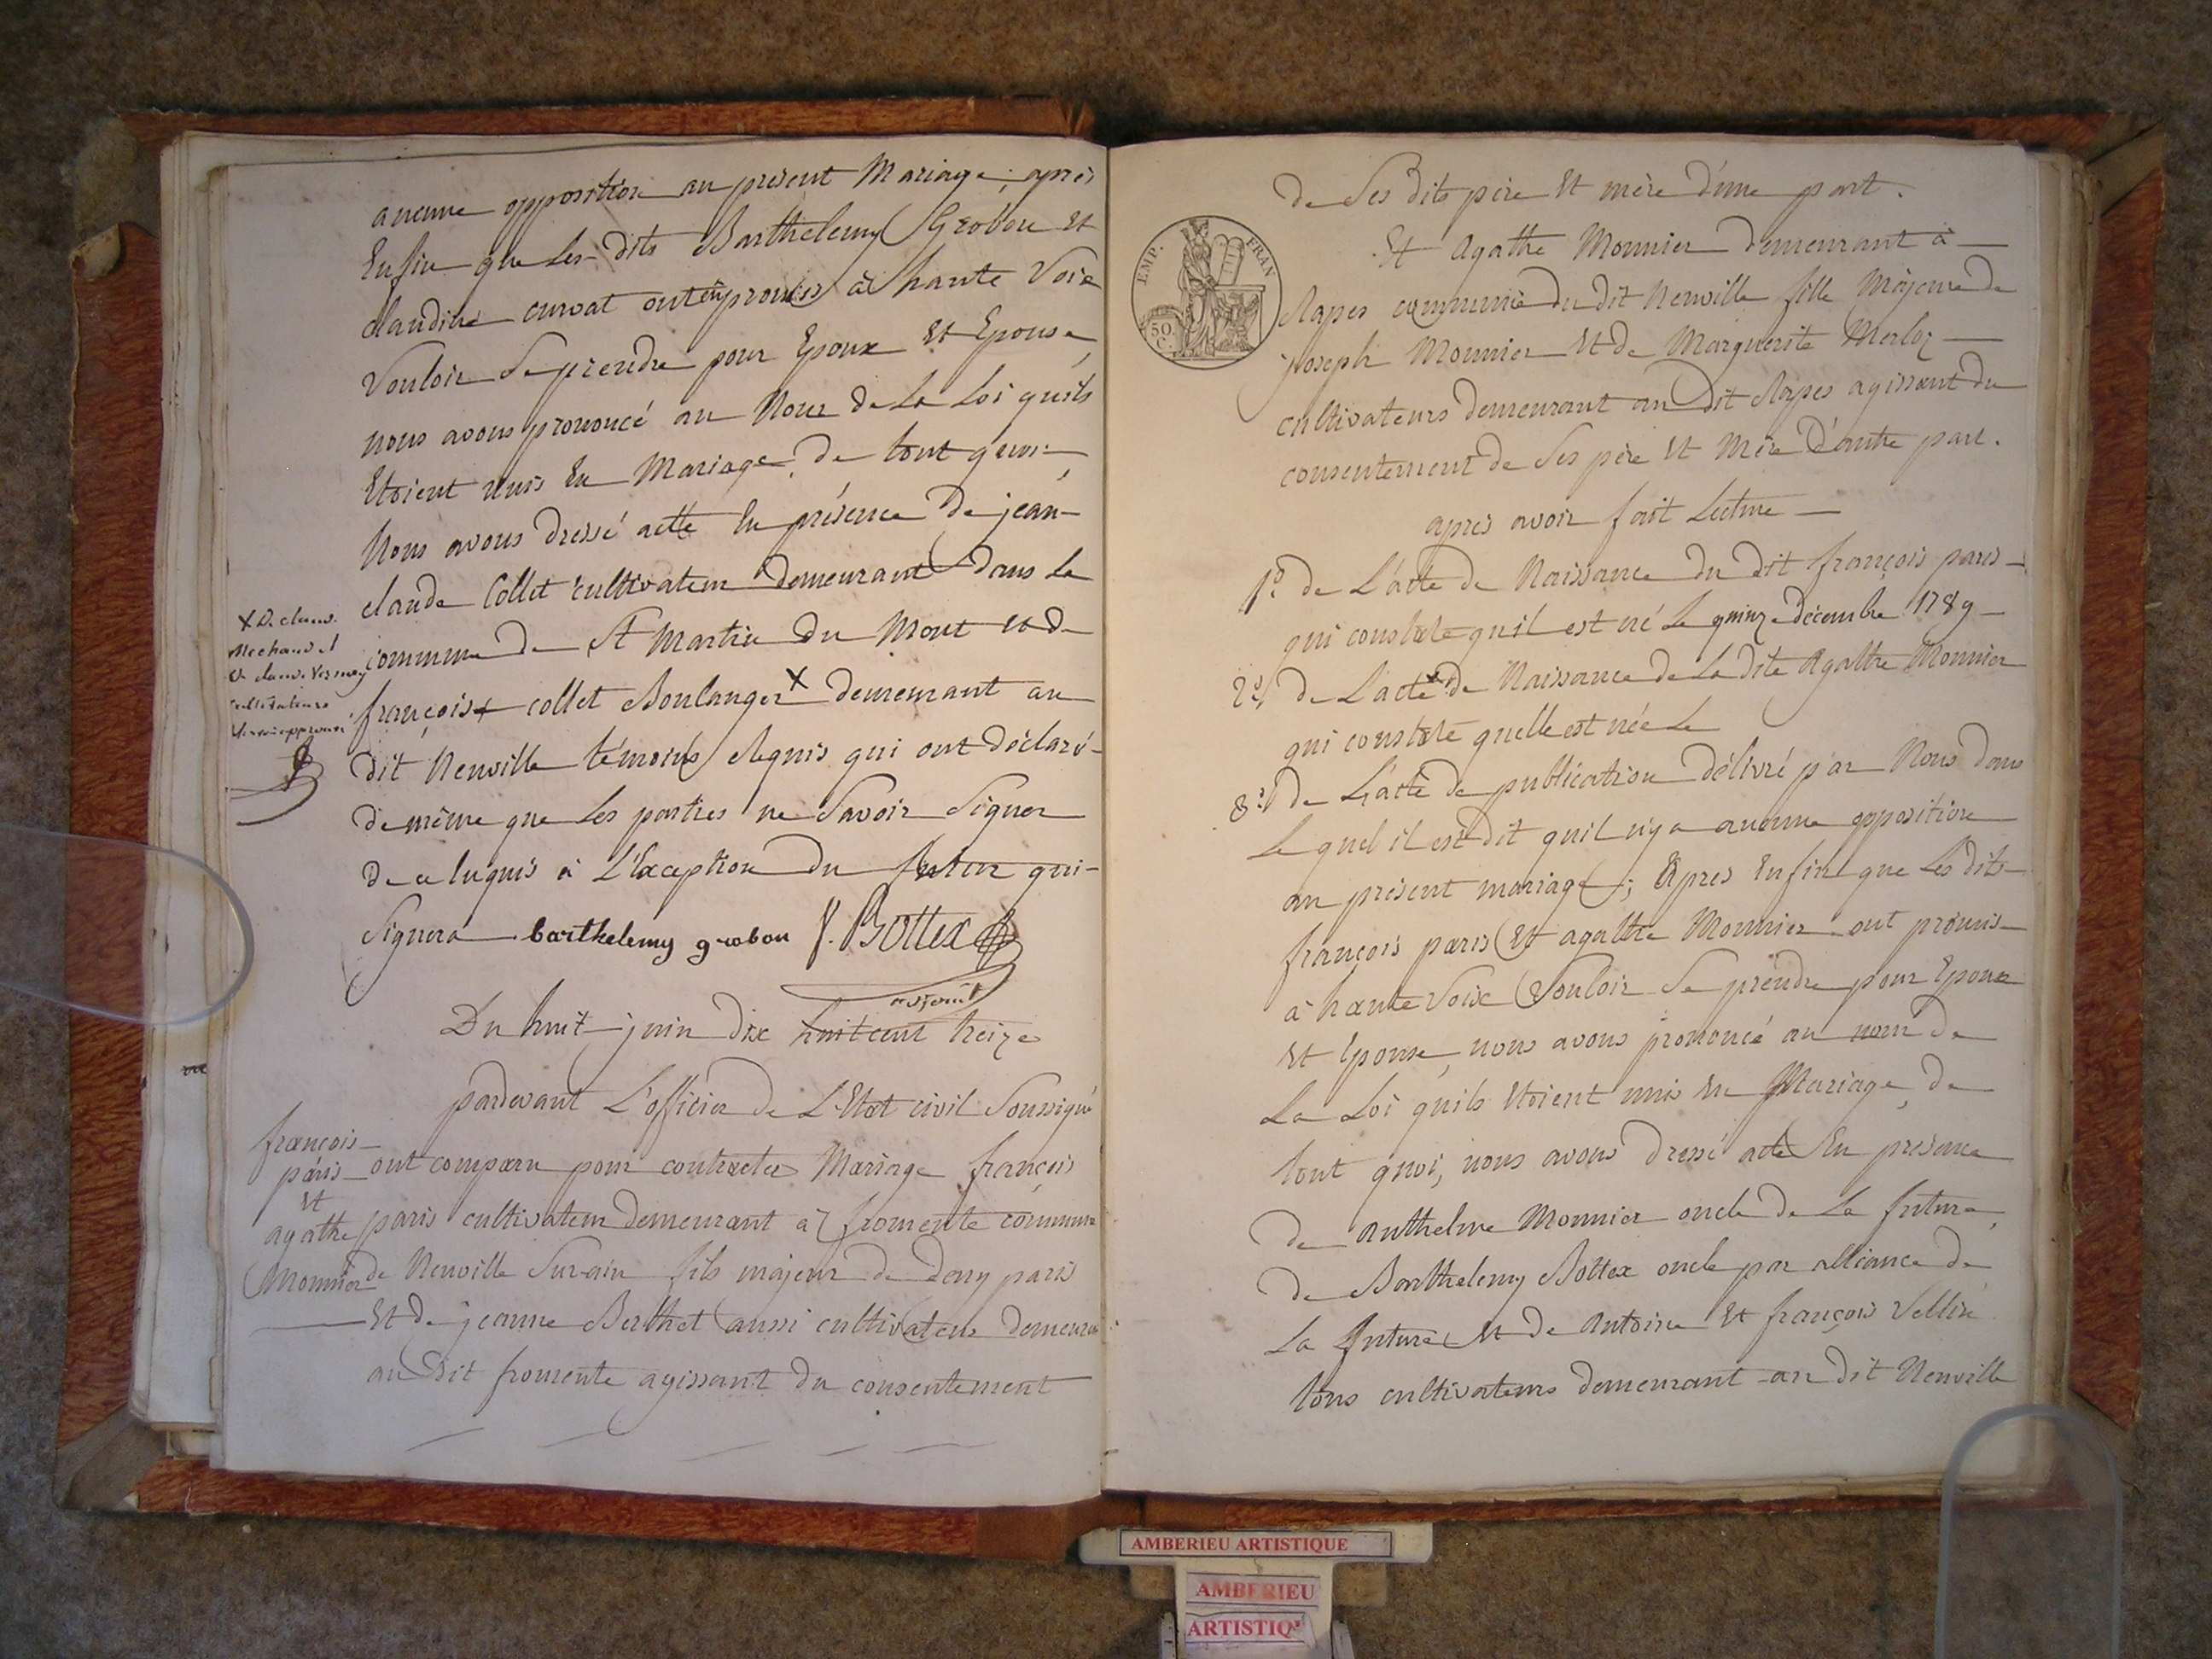 aucune opposition au present Mariage; après
Enfin que Les dits Barthelemy Grobon Et
claudine curvat ont promis à haute Voix
Vouloir Se prendre pour Epoux Et Epouse,
nous avons prononcé au Nom de La Loi quils
Etoient unis En Mariage, de tout quoi
Nous avons dressé acte En présence de jean
claude Collet cultivateur demeurant dans La
commune de St Martin du Mont et de
françois collet Boulanger X demeurant au
dit Neuville témoins Requis qui ont déclaré
de même que Les parties ne Savoir Signer
de ce Requis à L'Exception du futur qui
Signera barthelemy grobon J. Bottex
adjoint
X De claude
Mechaud et
De claude
cultivateurs
Renvoi approuvé
Du huit juin dix huit cent treize
pardevant L'officier de L'Etat civil Soussigné
ont comparu pour contracter Mariage françois
paris cultivateur demeurant à fromente commune
de Neuville Sur ain fils majeur de deny paris
Et de jeanne Berthet aussi cultivateurs demeurant
au dit fromente agissant du consentement
françois
paris
Et
agathe
Monnier
de Ses dits père Et mère d'une part.
Et Agathe Monnier demeurant à
Rapes commune du dit Neuville fille Majeure de
joseph Monnier Et de Marguerite Merloz
cultivateurs demeurant au dit Rapes agissant du
consentement de Ses père Et Mère D'autre part.
après avoir fait Lecture
1° de L'acte de Naissance du dit françois paris
qui constate quil est né Le quinze décembre 1789
2° de L'acte de Naissance de La dite Agathe Monnier
qui constate quelle est née Le
3° de L'acte de publication délivré par Nous dans
Le quel il est dit quil n'y a aucune opposition
au présent mariage; Après Enfin que Les dits
françois paris Et agathe Monnier ont promis
à haute Voix Vouloir Se prendre pour Epoux
Et Epouse, nous avons prononcé au nom de
La Loi quils Etoient unis En Mariage, de
tout quoi, nous avons dressé acte En presence
de anthelme Monnier oncle de La future,
de Barthelemy Bottex oncle par alliance de
La future Et de Antoine Et françois Vellin
tous cultivateurs demeurant au dit Neuville
EMP. FRAN
50
C.
AMBERIEU ARTISTIQUE
AMBERIEU
ARTISTIQ